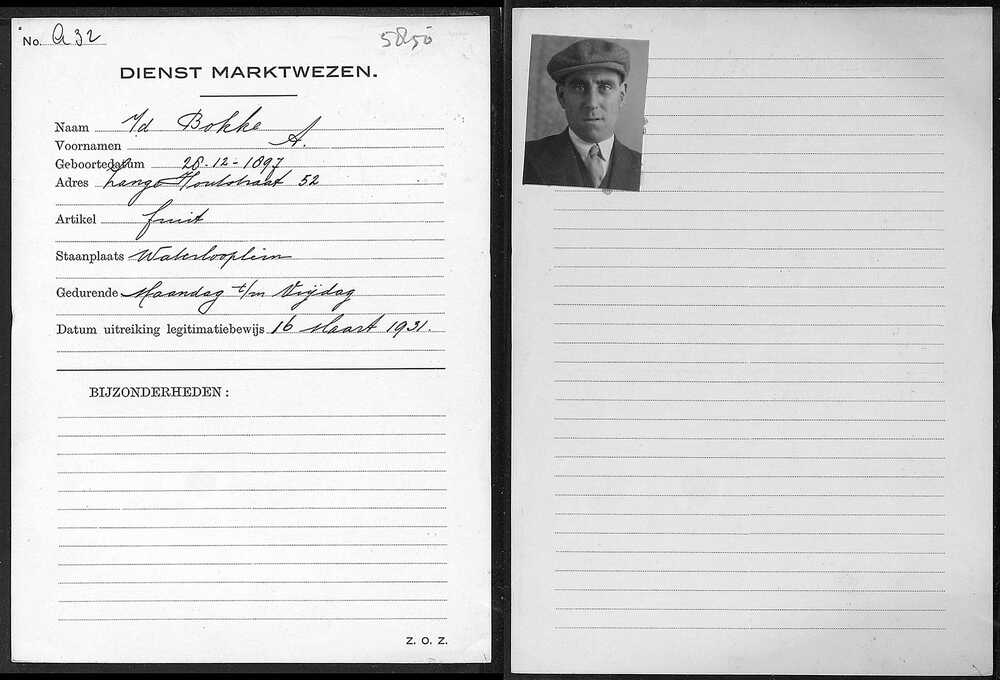 No. A 32
5850
DIENST MARKTWEZEN.
Naam v/d Bokke
Voornamen A.
Geboortedatum 28-12-1897
Adres Lange Houtstraat 52
Artikel fruit
Staanplaats Waterlooplein
Gedurende Maandag t/m Vrijdag
Datum uitreiking legitimatiebewijs 16 Maart 1931.
BIJZONDERHEDEN :
Z. O. Z.